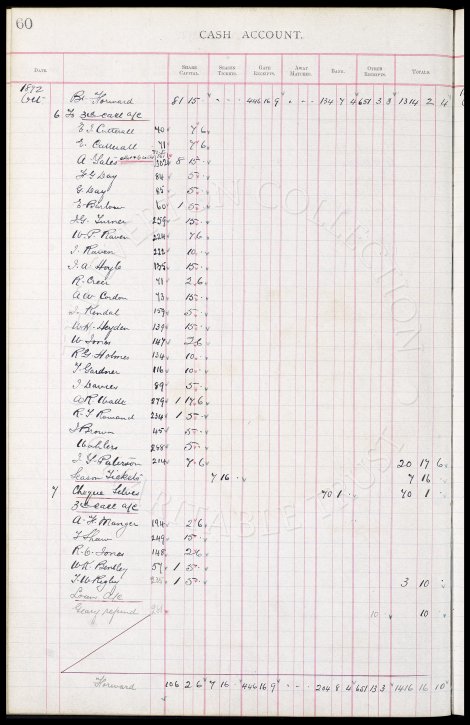 60
CASH ACCOUNT.
DATE. SHARE CAPITAL. SEASON TICKETS. GATE RECEIPTS. AWAY MATCHES. BANK. OTHER RECEIPTS. TOTALS.
Oct Bt Forward 81 15 - - - 446 16 9 - - - 134 7 4 651 3 3 1314 2 4
6 To 3rd call a/c
E I Catterall 40 7 6
E. Catterall 41 7 6
A Gates 8 15
G Day 84 5
G Day 85 5
E Barlow 60 1 5
Turner 259 15
W. P. Raven 224 7 6
I. Raven 10
I. A. Hoyle 15
R. Greer 71 2 6
A W Cordon 73 15
Kendal 159 5
W. H. Heyden 139 15
W Jones 147 2 6
R G Holmes 134 10
F. Gardner 116 10
I Davies 89 5
A R Watts 279 1 17 6
R. F Rowand 234 1 5
I Brown 45 5
Wahlers 5
I. Y. Paterson 214 7 6 20 17 6
Season Tickets 7 16 7 16
7 Cheque Selves 70 1 70 1
3rd call a/c
A. F Manger 194 2 6
F Shaw 249 15
R. C. Jones 148 2 6
W. K. Bentley 57 1 5
T. W. Rigby 235 1 5 3 10
Loan a/c
Geary refund 10 10
Forward 106 2 6 7 16 - 446 16 9 - - - 204 8 4 651 13 3 1416 16 10